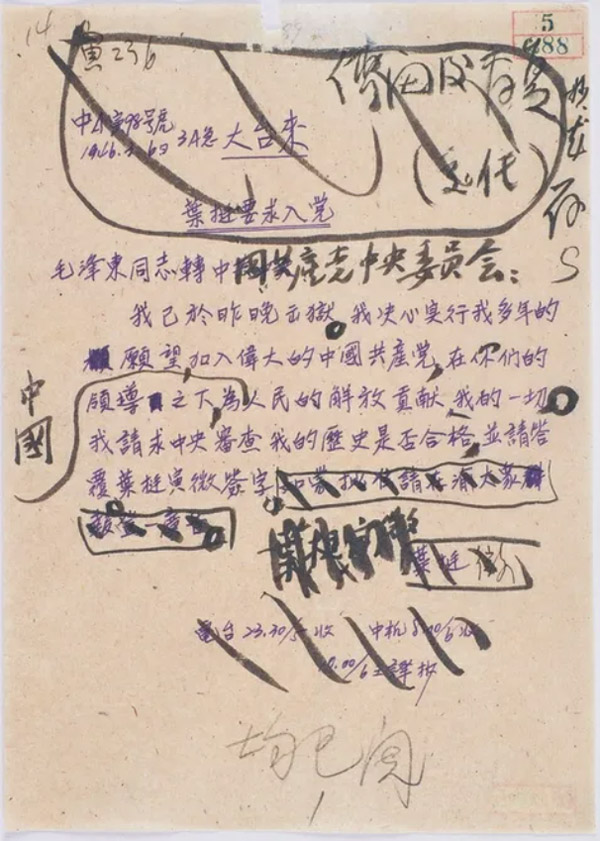 14
5
488
寅236
傳閱後存
中A字98號
1946.3.6日 3A急 大台來
葉挺要求入党
毛澤東同志轉中國共產党中央委員会：
我已於昨晚出獄。我决心实行我多年的
願望，加入偉大的中國共産党，在你們的
領導之下，為
中國
人民的解放貢献我的一切。
我請求中央審查我的歷史是否合格，並請答
覆。葉挺寅微簽字
葉挺
電台 23.30/5收 中机
10.00/6
譯抄
均已阅